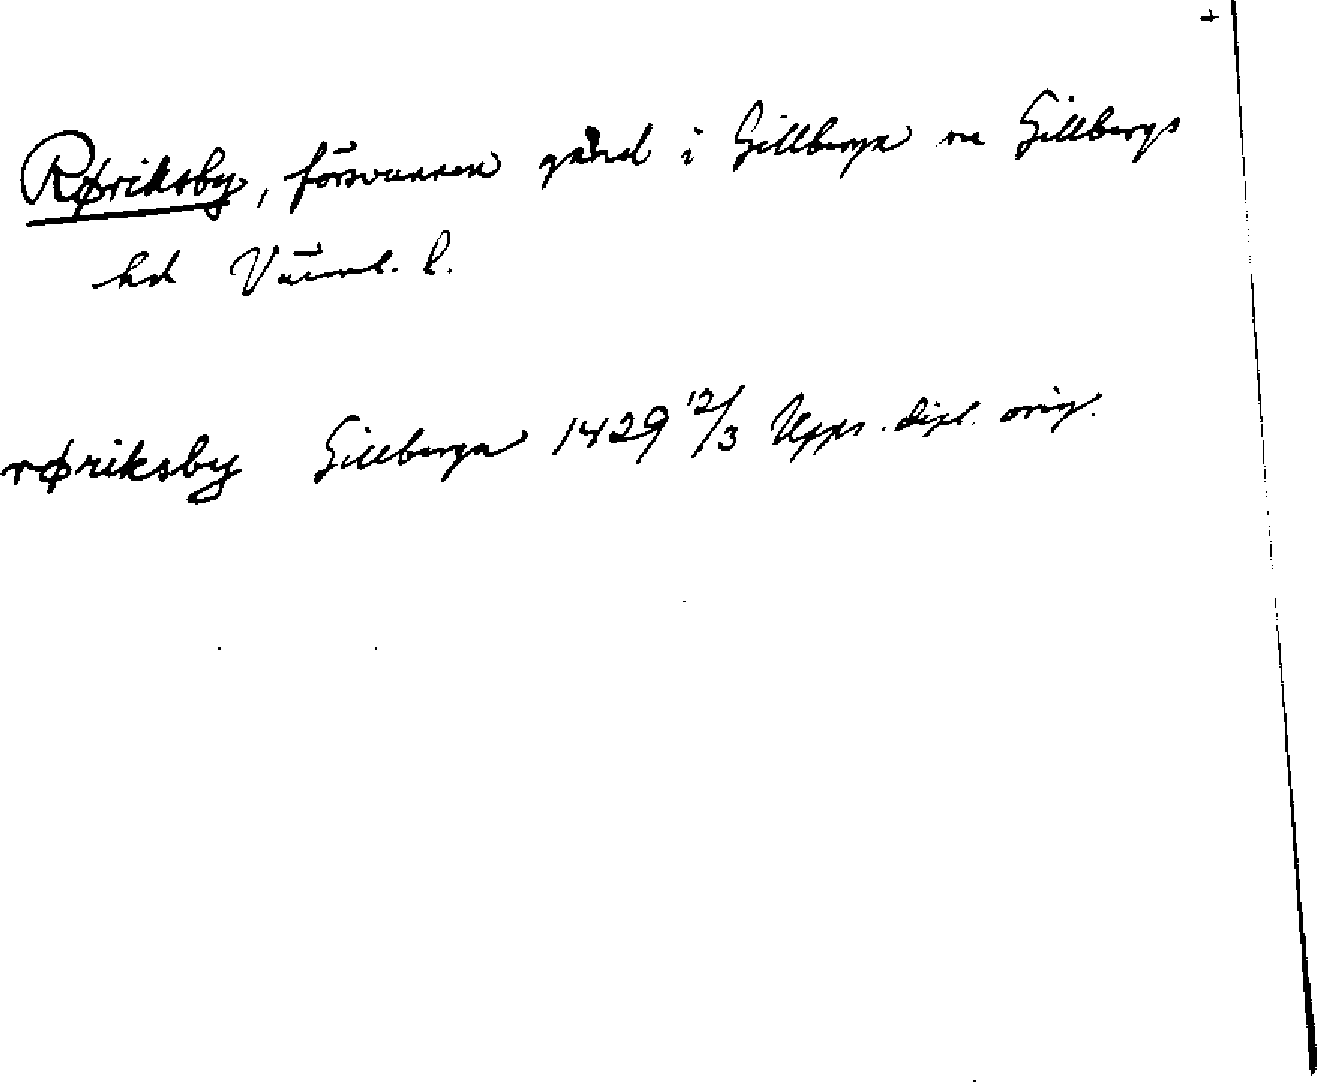 +
Røriksby, försvunnen gård i Gillberga sn Gillbergs
hd Värml. l.
røriksby Gillberga 1429 12/3 Upps. dipl. orig.